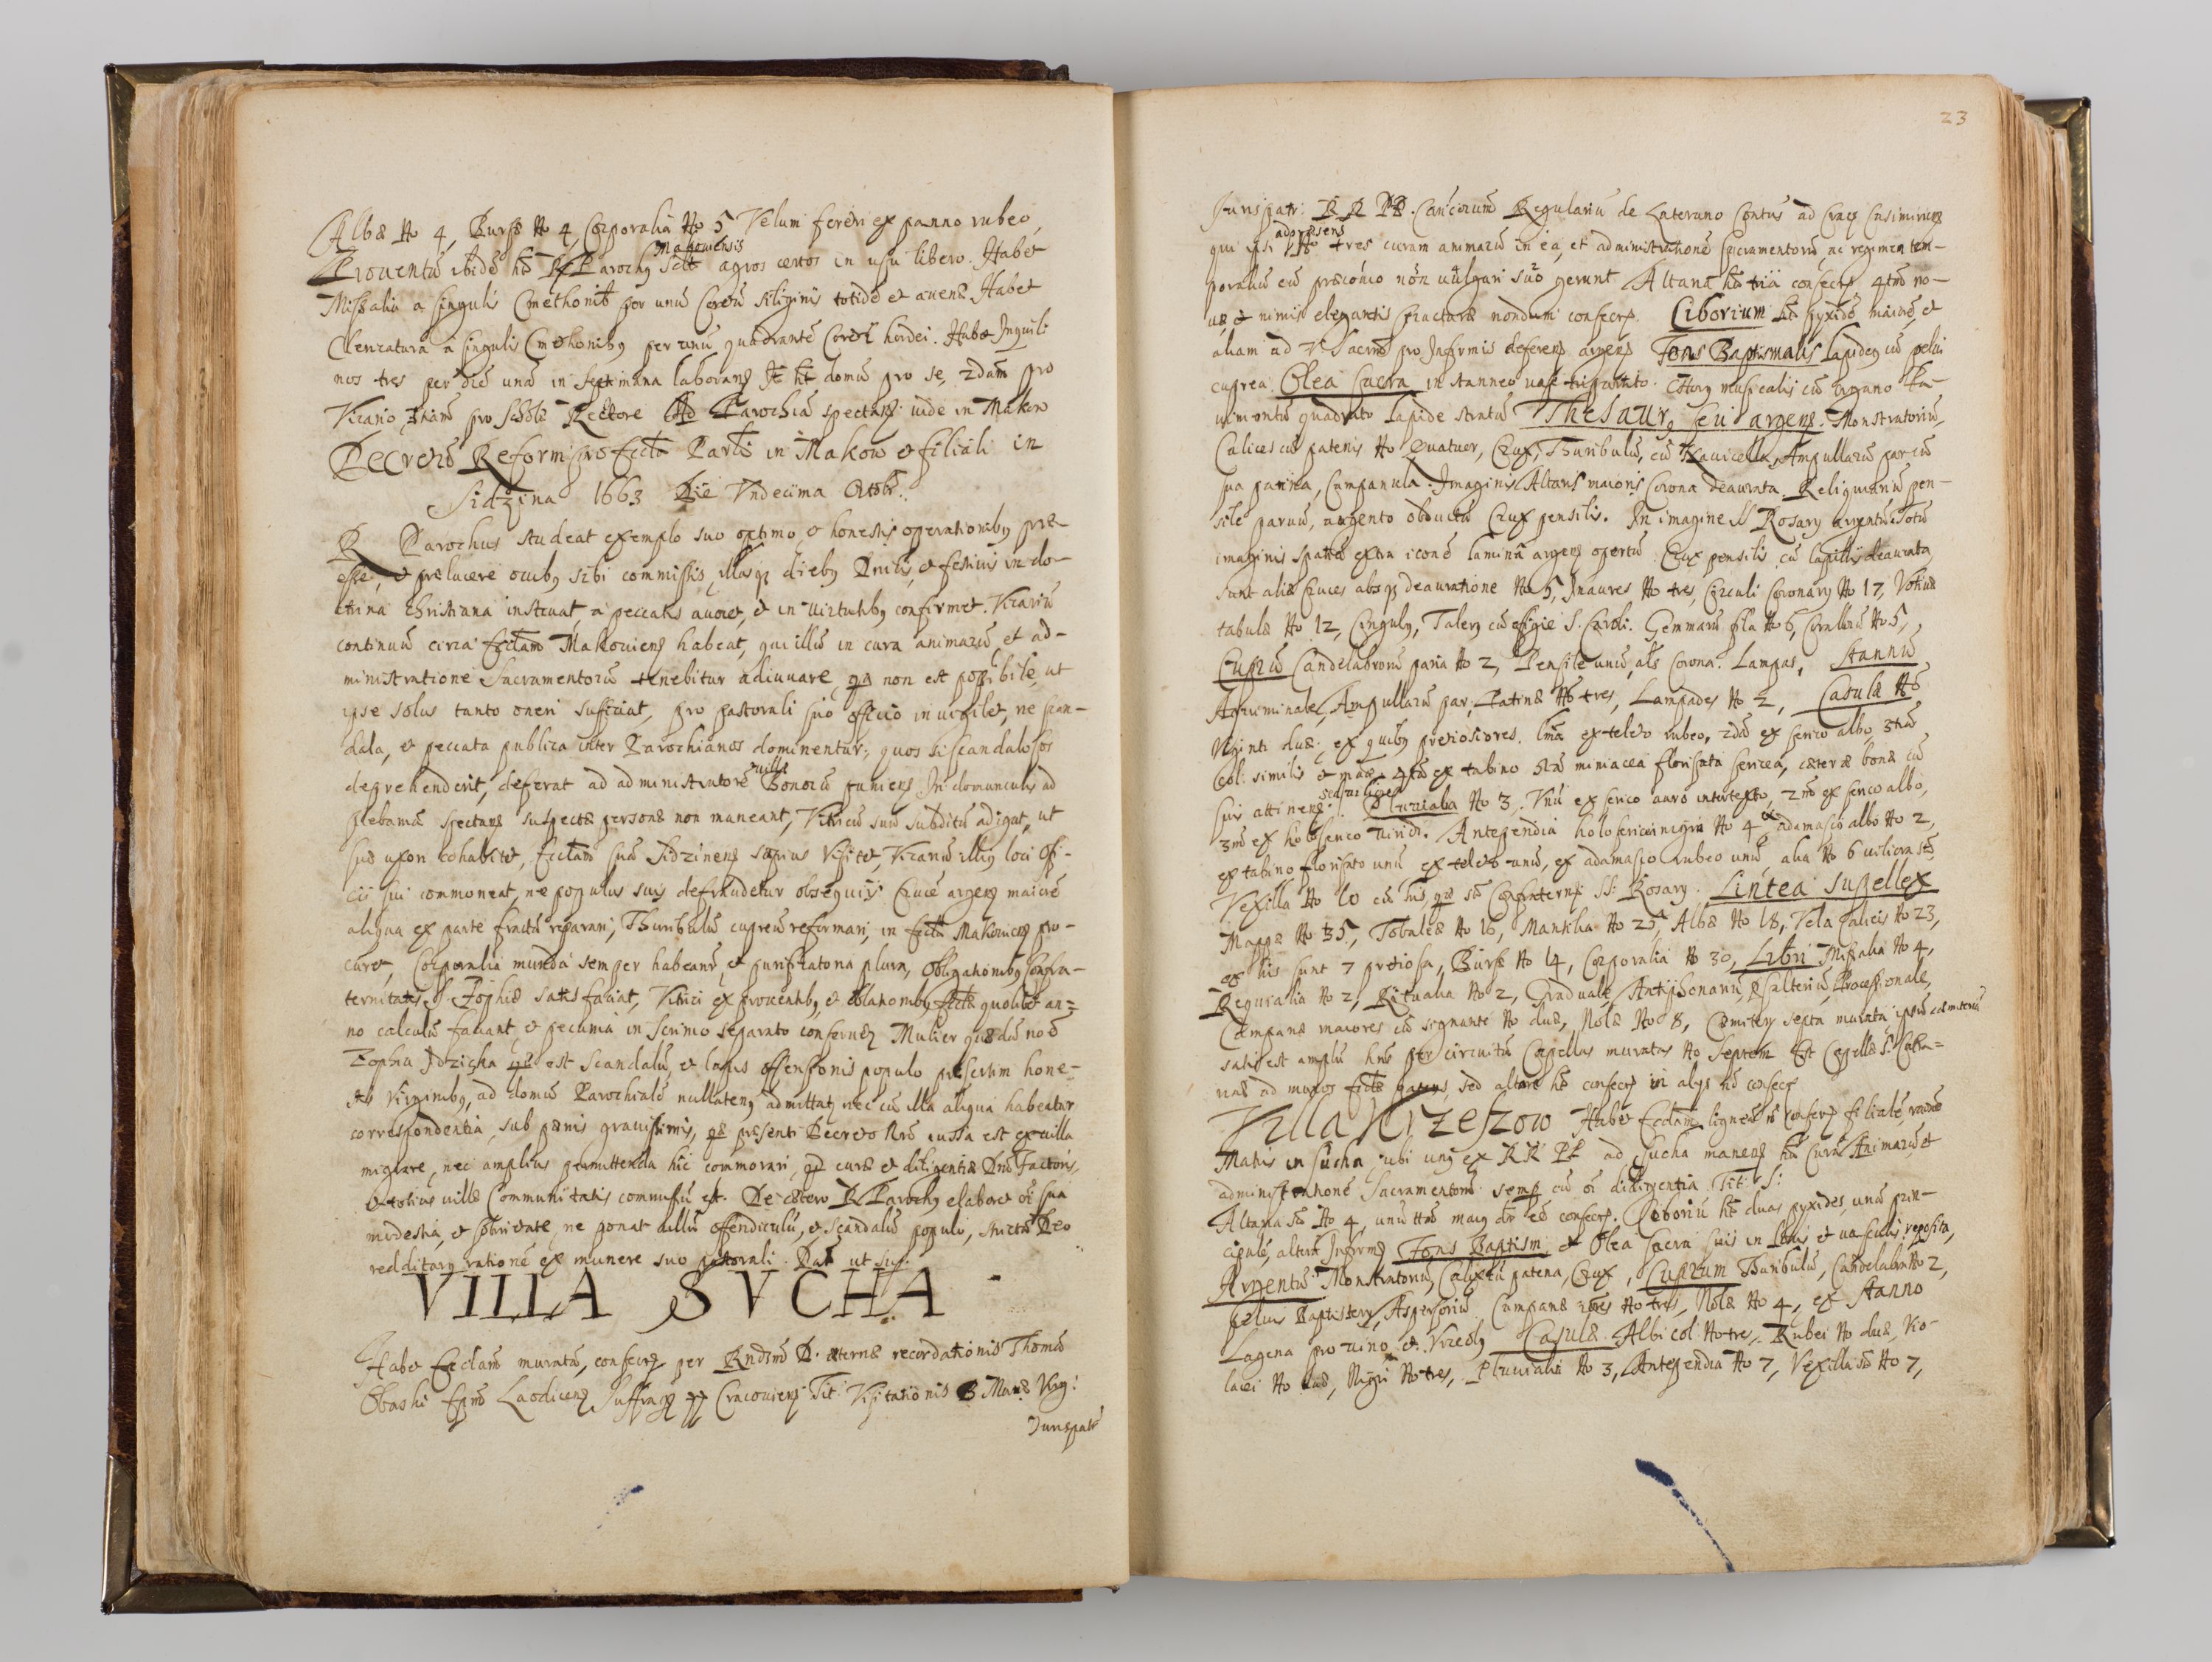 Albæ No 4, Bursæ No 4, Corporalia No 5, Velum feretri ex panno rubeo,
Prouentū ibidē ht R Parochus Makouiensis scilt agros certos in usu libero. Habet
Missalia a singulis Cmethonib per unū Coretū siliginis totidē et auenæ. Habet
Clericaturā a singulis Cmethonibus per unū quadrantē Coreti hordei. Habet Inquili
nos tres per diē unā in septimana laborans. It ht domū pro se, 2dam pro
Vicario, 3tiam pro Scholæ Rectore. Ad Parochiā spectans uide in Makow
Decretū Reform pro Eccta Parli in Makow et filiali in
Sidzina 1663 Die Vndecima Octobr.
R Parochus studeat exemplo suo optimo, et honestis operationibus præ-
esse, et prælucere ouibus sibi commissis, illasq diebus Dnicis, et festiuis in do-
ctrina christiana instruat, a peccatis auocet, et in uirtutibus confirmet. Vicariū
continuū circa Ecclam Makouiens habeat, qui illū in cura animarū, et ad-
ministratione Sacramentorū tenebitur adiuuare, qa non est possibile, ut
ipse solus tanto oneri sufficiat, pro pastorali suo officio inuigilet, ne scan-
dala, et peccata publica inter Parochianos dominentur, quos si scandalosos
deprehenderit, deferat ad administratorē villæ Bonorū puniens. In domunculis ad
plebaniā spectans suspectæ personæ non maneant, Vitricū suū subditū adigat, ut
suā uxori cohabitet, Ecclam suā Sidzinens sæpius Visitet, Vicariū illius loci offi-
cii sui commoneat, ne populus suis defraudetur obsequijs. Crucē argens maiorē
aliqua ex parte fractā reparari, Thuribulū cupreū reformari, in Eccta Makouiens pro-
curet, Corporalia munda semper habeant, et purificatoria plura, Obligationibus Confra-
ternitatis S. Zophiæ satisfaciat, Vitrici ex prouentibus, et oblationibus Ecctæ quolibet an-
no calculū faciant, et pecunia in scrinio separato conseruens. Mulier quædā noē
Zophia Idzicha quæ est scandalū, et lapis offensionis populo præsertim hone-
stis Virginibus, ad domū Parochialē nullatenus admittat, nec cū illa aliqua habeatur
correspondentia, sub pænis grauissimis, quæ præsenti Decreto Nro iussa est ex villa
migrare, nec amplius permittenda hic commorari, qd curæ et diligentiæ Dni Factoris,
et totius uillæ Communitatis commissū est. De cætero R Parochus elaboret oī sua
modestia, et sobrietate, ne ponat ullū offendiculū, et scandalū populo, strictā Deo
redditurus rationē ex munere suo pastorali. Dat ut sup.
VILLA SVCHA
Habet Ecclam muratā, consecrs per Rndsmū D. æternæ recordationis Thomā
Obaski Epm̄ Laodicens Suffrags Cracouiens Tit Visitationis B Mariæ Virg:
Iurispatr
23
Iurispatr. RR PP. Canicorum Regulariū de Laterano Contus ad Cracs Casimiriens
qui ipsi ad præsens No tres curam animarū in ea, et administrationē Sacramentorū, ac regimen tem-
poraliū cū præconio non uulgari suo gerunt. Altaria ht tria consecrs 4tū no-
uæ et nimis elegantis structuræ nondum consecrs. Ciborium ht pyxidē maiorē, et
aliam ad V Sacrm pro Infirmis deferens argens. Fons Baptismalis lapideus cū pelui
cuprea. Olea Sacra in stanneo uase tripartito. Chorus musicalis cū organo Pa-
uimentū quadrato lapide stratū. Thesaurus seu argens. Monstratoriū,
Calices cū patenis No Quatuor, Crux, Thuribulū, cū Nauicella, Ampullarū par cū
sua patina, Campanula. Imaginis Altaris maioris Corona deaurata. Reliquiariū pen-
sile paruū, argento obductū Crux pensilis. In imagine SS Rosary argentū. Totū
imaginis spatiū extra iconē lamina argens opertū. Crux pensilis cū lapillis deaurata
sunt aliæ Cruces absq deauratione No 5, Inaures No tres, Circuli Coronary No 17, Votiuæ
tabulæ No 12, Cingulus, Talerus cū effigie S. Caroli. Gemmarū fila No 6, Corallorū No 5,
Cuprū Candelabrorū paria No 2, Pensile unū, als Corona. Lampas, Stannū
Aquiminale, Ampullarū par, Patinæ No tres, Lampades No 2, Casulæ No
Viginti duæ, ex quibus pretiosiores. 1ma ex teleto rubeo, 2da ex serico albo 3tia
Col. similis et mate. 4ta ex tabino 5ta miniacea florisata sericea, cæteræ bonæ cū
suis attinens. Pluuialia No 3. Vnū ex serico auro intertexto, 2m ex serico albo,
3m ex holoserico uiridi. Antependia holosericei nigri No 4 ex adamasco albo No 2,
ex tabino florisato unū, ex teleto unū, ex adamasco rubeo unū, alia No 6 uiliora
Vexilla No 10 cū his, quæ st Confraterns SS: Rosary. Lintea supellex
Mappæ No 35, Tobaleæ No 16, Mantilia No 25, Albæ No 18, Vela Calicis No 23,
ex his sunt 7 pretiosa, Bursæ No 14, Corporalia No 30, Libri Missalia No 4,
Requialia No 2, Ritualia No 2, Graduale, Antiphonariū, Psalteriū, Processionale,
Campanæ maiores cū signanti No duæ, Nolæ No 8, Cæmiterij septa murata ipsū cæmiteriū
satis est amplū hns per circuitū Capellas muratas No septem. Est Capella S. Catha-
rinæ ad muros Ecctæ patens, sed altare ht consecrs in alijs nō consecr
Villa Krzeszow Habet Ecclam ligneā nō consecrs filialē,
Matris in Sucha, ubi unus ex RR PP ad Sucha manens ht Curā Animarū, et
administrationē Sacramentorū semp cū oī diligentia. Tit. S:
Altaria st No 4, unū ttm̄ maius consecrs. Ciboriū ht duas pyxides, unā prin-
cipalē, alterā Infirms Fons Baptism et Olea Sacra suis in locis et uasculis reposita,
Argentū Monstratoriū, Calix cū patena, Crux, Cuprum Thuribulū, Candelabra No 2,
peluis Baptistery, Aspersoriū, Campanæ No tres, Nolæ No 4, ex Stanno
Lagena pro uino, et Vrceolus. Casulæ Albi col: No tres, Rubei No duæ, Vio-
lacei No duæ, Nigri No tres, Pluuialia No 3, Antependia No 7, Vexilla st No 7,